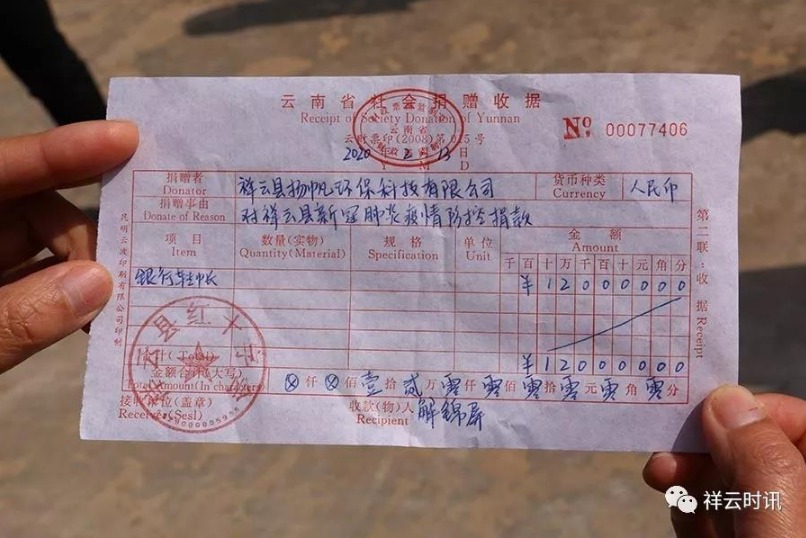 云南省社会捐赠收据
Receipt of Society Donation of Yunnan
云财票印(2008)第 015 号
No 00077406
2020 2 13日
Y M D
捐赠者 祥云县扬帆环保科技有限公司 货币种类 人民币
Donator Currency
捐赠事由 对祥云县新冠肺炎疫情防控捐款
Donate of Reason
项目 数量(实物) 规格 单位 金额
Item Quantity(Material) Specification Unit Amount
千百十万千百十元角分
银行转帐 ¥120000000
合计(Total) ¥120000000
金额合计(大写) ⊗仟⊗佰壹拾贰万零仟零佰零拾零元零角零分
Total Amount(In characters)
接收单位(盖章) 收款(物)人 解锦屏
Receiver(Sesl) Recipient
昆明云波印刷有限公司印制
第二联:收据 Receipt
祥云时讯